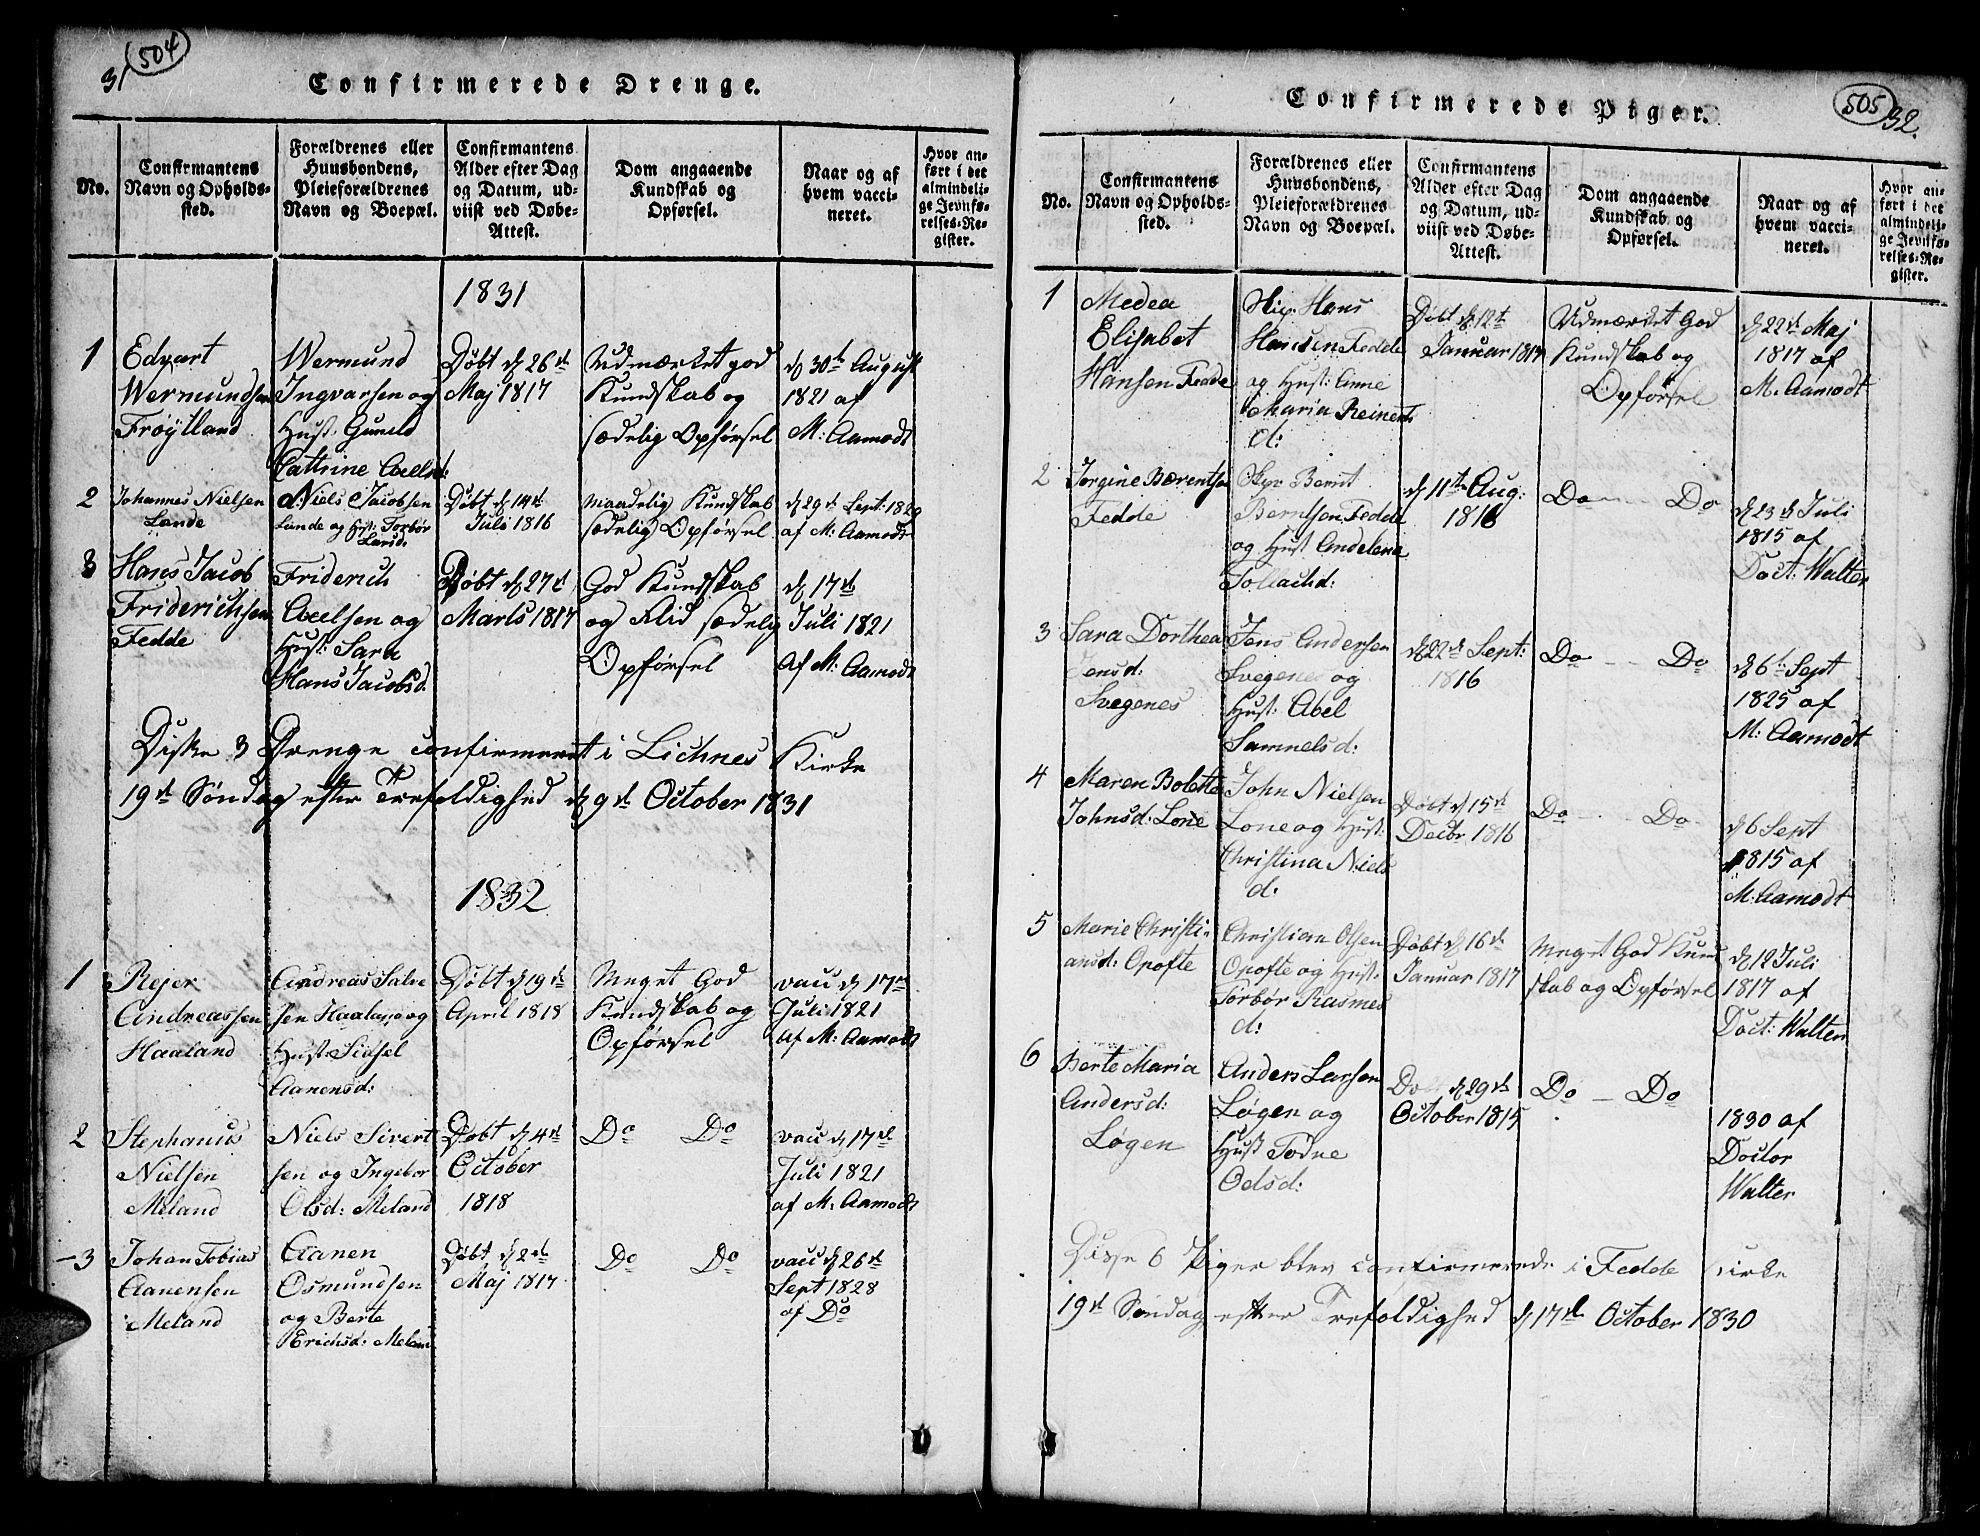 31 504
Confirmerede Drenge.
No.
Confirmantens
Navn og Opholds-
sted.
Forældrenes eller
Huusbondens,
Pleieforældrenes
Navn og Boepæl.
Confirmantens
Alder efter Dag
og Datum, ud-
viist ved Døbe-
Attest.
Dom angaaende
Kundskab og
Opførsel.
Naar og af
hvem vacci-
neret.
Hvor an-
ført i det
almindeli-
ge Jevnfø-
relses-Re-
gister.
1831
1
Edvart
Wermundsen
Frøÿtland
Wermund
Ingvarsen og
Hust: Gunild
Cattrine Axelsd:
Døbt d 26de
Maj 1817
Udmærket god
Kundskab og
sædelig Opførsel
d 30te August
1821 af
M: Aamodt
2
Johannes Nielsen
Lande
Niels Jacobsen
Lande og Hst: Torbør
Larsd:
Døbt d 14de
Juli 1816
maadelig Kundskab
sædelig Opførsel
d 29de Sept: 1829
af M: Aamodt
3
Hans Jacob
Friderichsen
Fedde
Friderich
Axelsen og
Hust: Sara
Hans Jacobsd:
Døbt d 27de
Marts 1817
God Kundskab
og Flid sædelig
Opførsel
d 17de
Juli 1821
af M: Aamodt
Diske 3 Drenge confirmeret i Lichnes Kirke
19de Søndag efter Trefoldighed d 9de October 1831
1832
1
Rejer
Andreassen
Haaland
Andreas Salve
sen Haaland og
Hust: Sidsel
Aanensd:
Døbt d 19de
April 1818
Meget God
Kundskab og
Opførsel
vacc d 17de
Juli 1821
af M: Aamodt
2
Stephanus
Nielsen
Meland
Niels Sivert
sen og Ingebor
Olsd: Meland
Døbt d 4de
October
1818
Do Do
vacc d 17de
Juli 1821
af M: Aamodt
- 3
Johan Tobias
Aanensen
Meland
Aanen
Osmundsen
og Berte
Erichsd: Meland
Døbt d 2de
Maj 1817
Do Do
vacc d 26de
Sept 1828
af Do
Confirmerede Piger.
505 32.
No.
Confirmantens
Navn og Opholds-
sted.
Forældrenes eller
Huusbondens,
Pleieforældrenes
Navn og Boepæl.
Confirmantens
Alder efter Dag
og Datum, ud-
viist ved Døbe-
Attest.
Dom angaaende
Kundskab og
Opførsel.
Naar og af
hvem vacci-
neret.
Hvor an-
ført i det
almindeli-
ge Jevnfø-
relses-Re-
gister.
1
Medea
Elisabet
Hansen Fedde
Skip: Hans
Hansen Fedde
og Hust: Anne
Maria Reinerts
d:
Døbt d 12te
Januar 1817
Udmærket God
Kundskab og
Opførsel
d 22de Maj
1817 af
M: Aamodt
2
Jorgine Bærentsen
Fedde
Skip Bernt
Berntsen Fedde
og Hust Andelena
Tollachd:
d 11te Aug:
1816
Do - - Do
d 23de Juli
1815 af
Doct: Walter
3
Sara Dorthea
Jensd:
Svegenes
Jens Andersen
Svegenes og
Hust: Abel
Samuelsd:
d 22de Sept:
1816
Do - - Do
d 6te Sept
1825 af
M: Aamodt
4
Maren Bolette
Johnsd: Lone
John Nielsen
Lone og Hust:
Christina Niels
d:
Døbt d 15de
Decbr 1816
Do - - Do
d 6 Sept
1815 af
M: Aamodt
5
Marie Christi-
ansd: Opofte
Christian Olsen
Opofte og Hust:
Torbør Rasmes
d:
Døbt d 16de
Januar 1817
Meget God Kund
skab og Opførsel
d 12 Juli
1817 af
Doct: Walter
6
Berte Maria
Andersd:
Løgen
Anders Larsen
Løgen og
Hust Todne
Odsd:
Do d 29de
October 1815
Do - Do
1830 af
Doctor
Walter
Disse 6 Piger blev confirmerede i Fedde Kirke
19de Søndag efter Trefoldighed d 17de October 1830